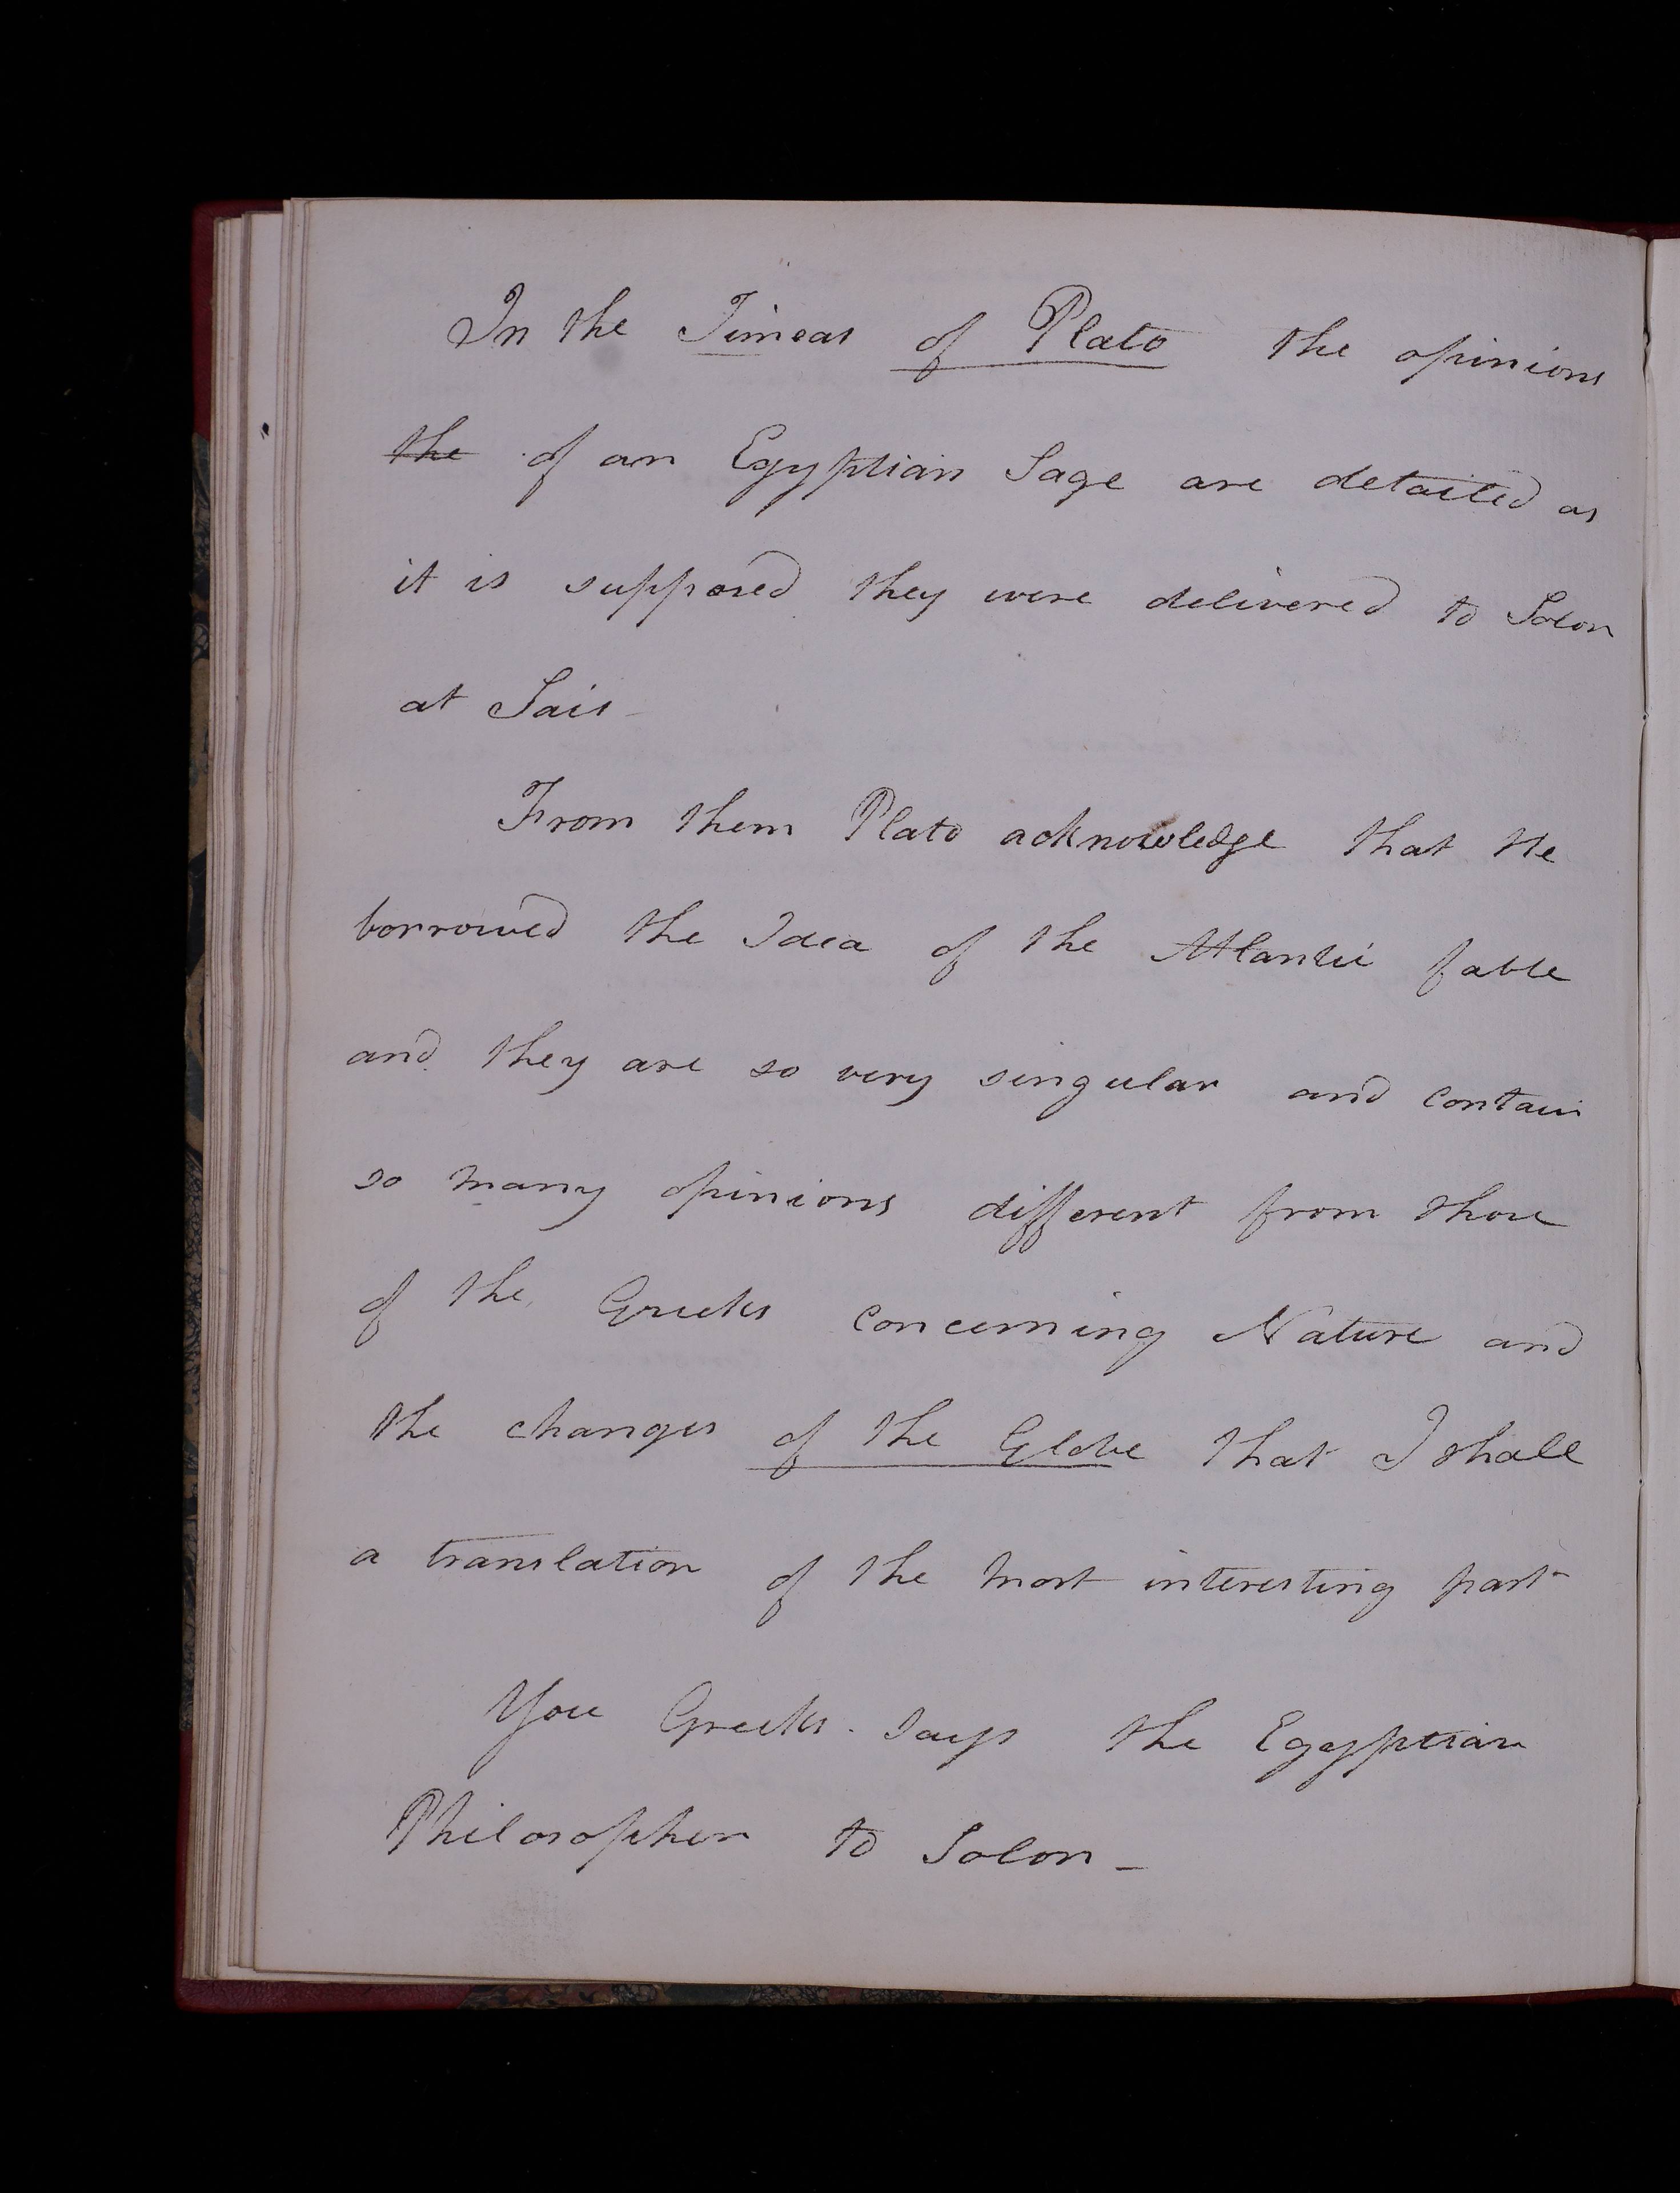 In the Timeas of Plato the opinions
the of an Egyptian Sage are detailed as
it is supposed they were delivered to Solon
at Sais
From them Plato acknowledge that He
borrowed the Idea of the Atlantic fable
and they are so very singular and contain
so many opinions different from those
of the Greeks concerning Nature and
the changes of the Globe that I shall
a translation of the most interesting part
You Greeks. says the Egyptian
Philosopher to Solon -